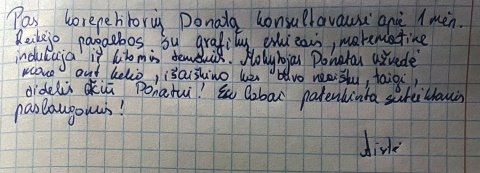 Pas korepetitorių Donatą konsultavausi apie 1 mėn.
Reikėjo pagalbos su grafikų eskizais, matematine
indukcija ir kitomis temomis. Mokytojas Donatas užvedė
mane ant kelio, išaiškino kas buvo neaišku, taigi,
didelis ačiū Donatui! Esu labai patenkinta suteiktomis
paslaugomis!